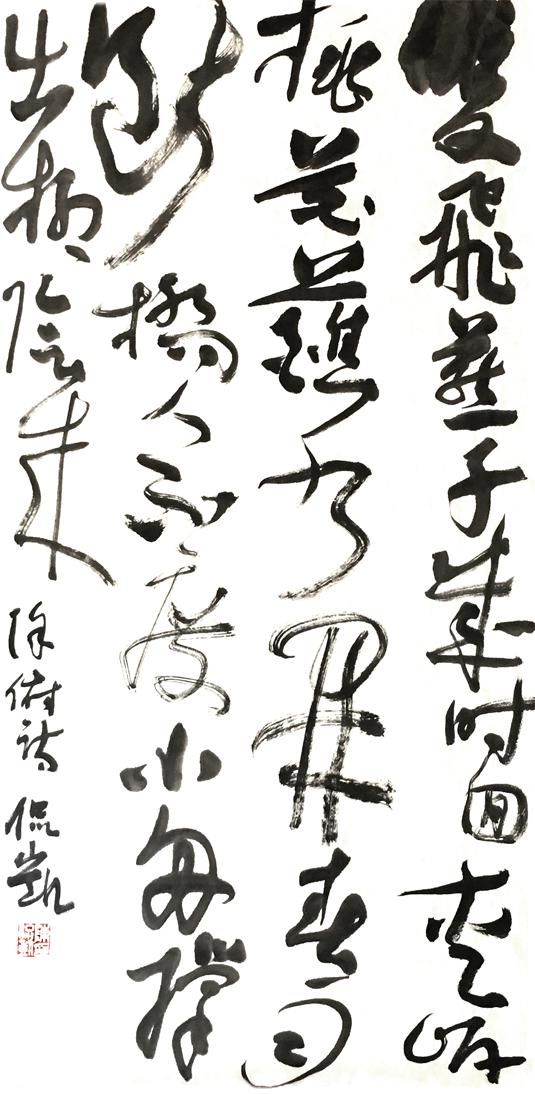 雙飛燕子幾时回夾岸
桃花蘸水開春雨
斷橋人不度小舟撐
出柳陰來 徐俯詩 侃凱